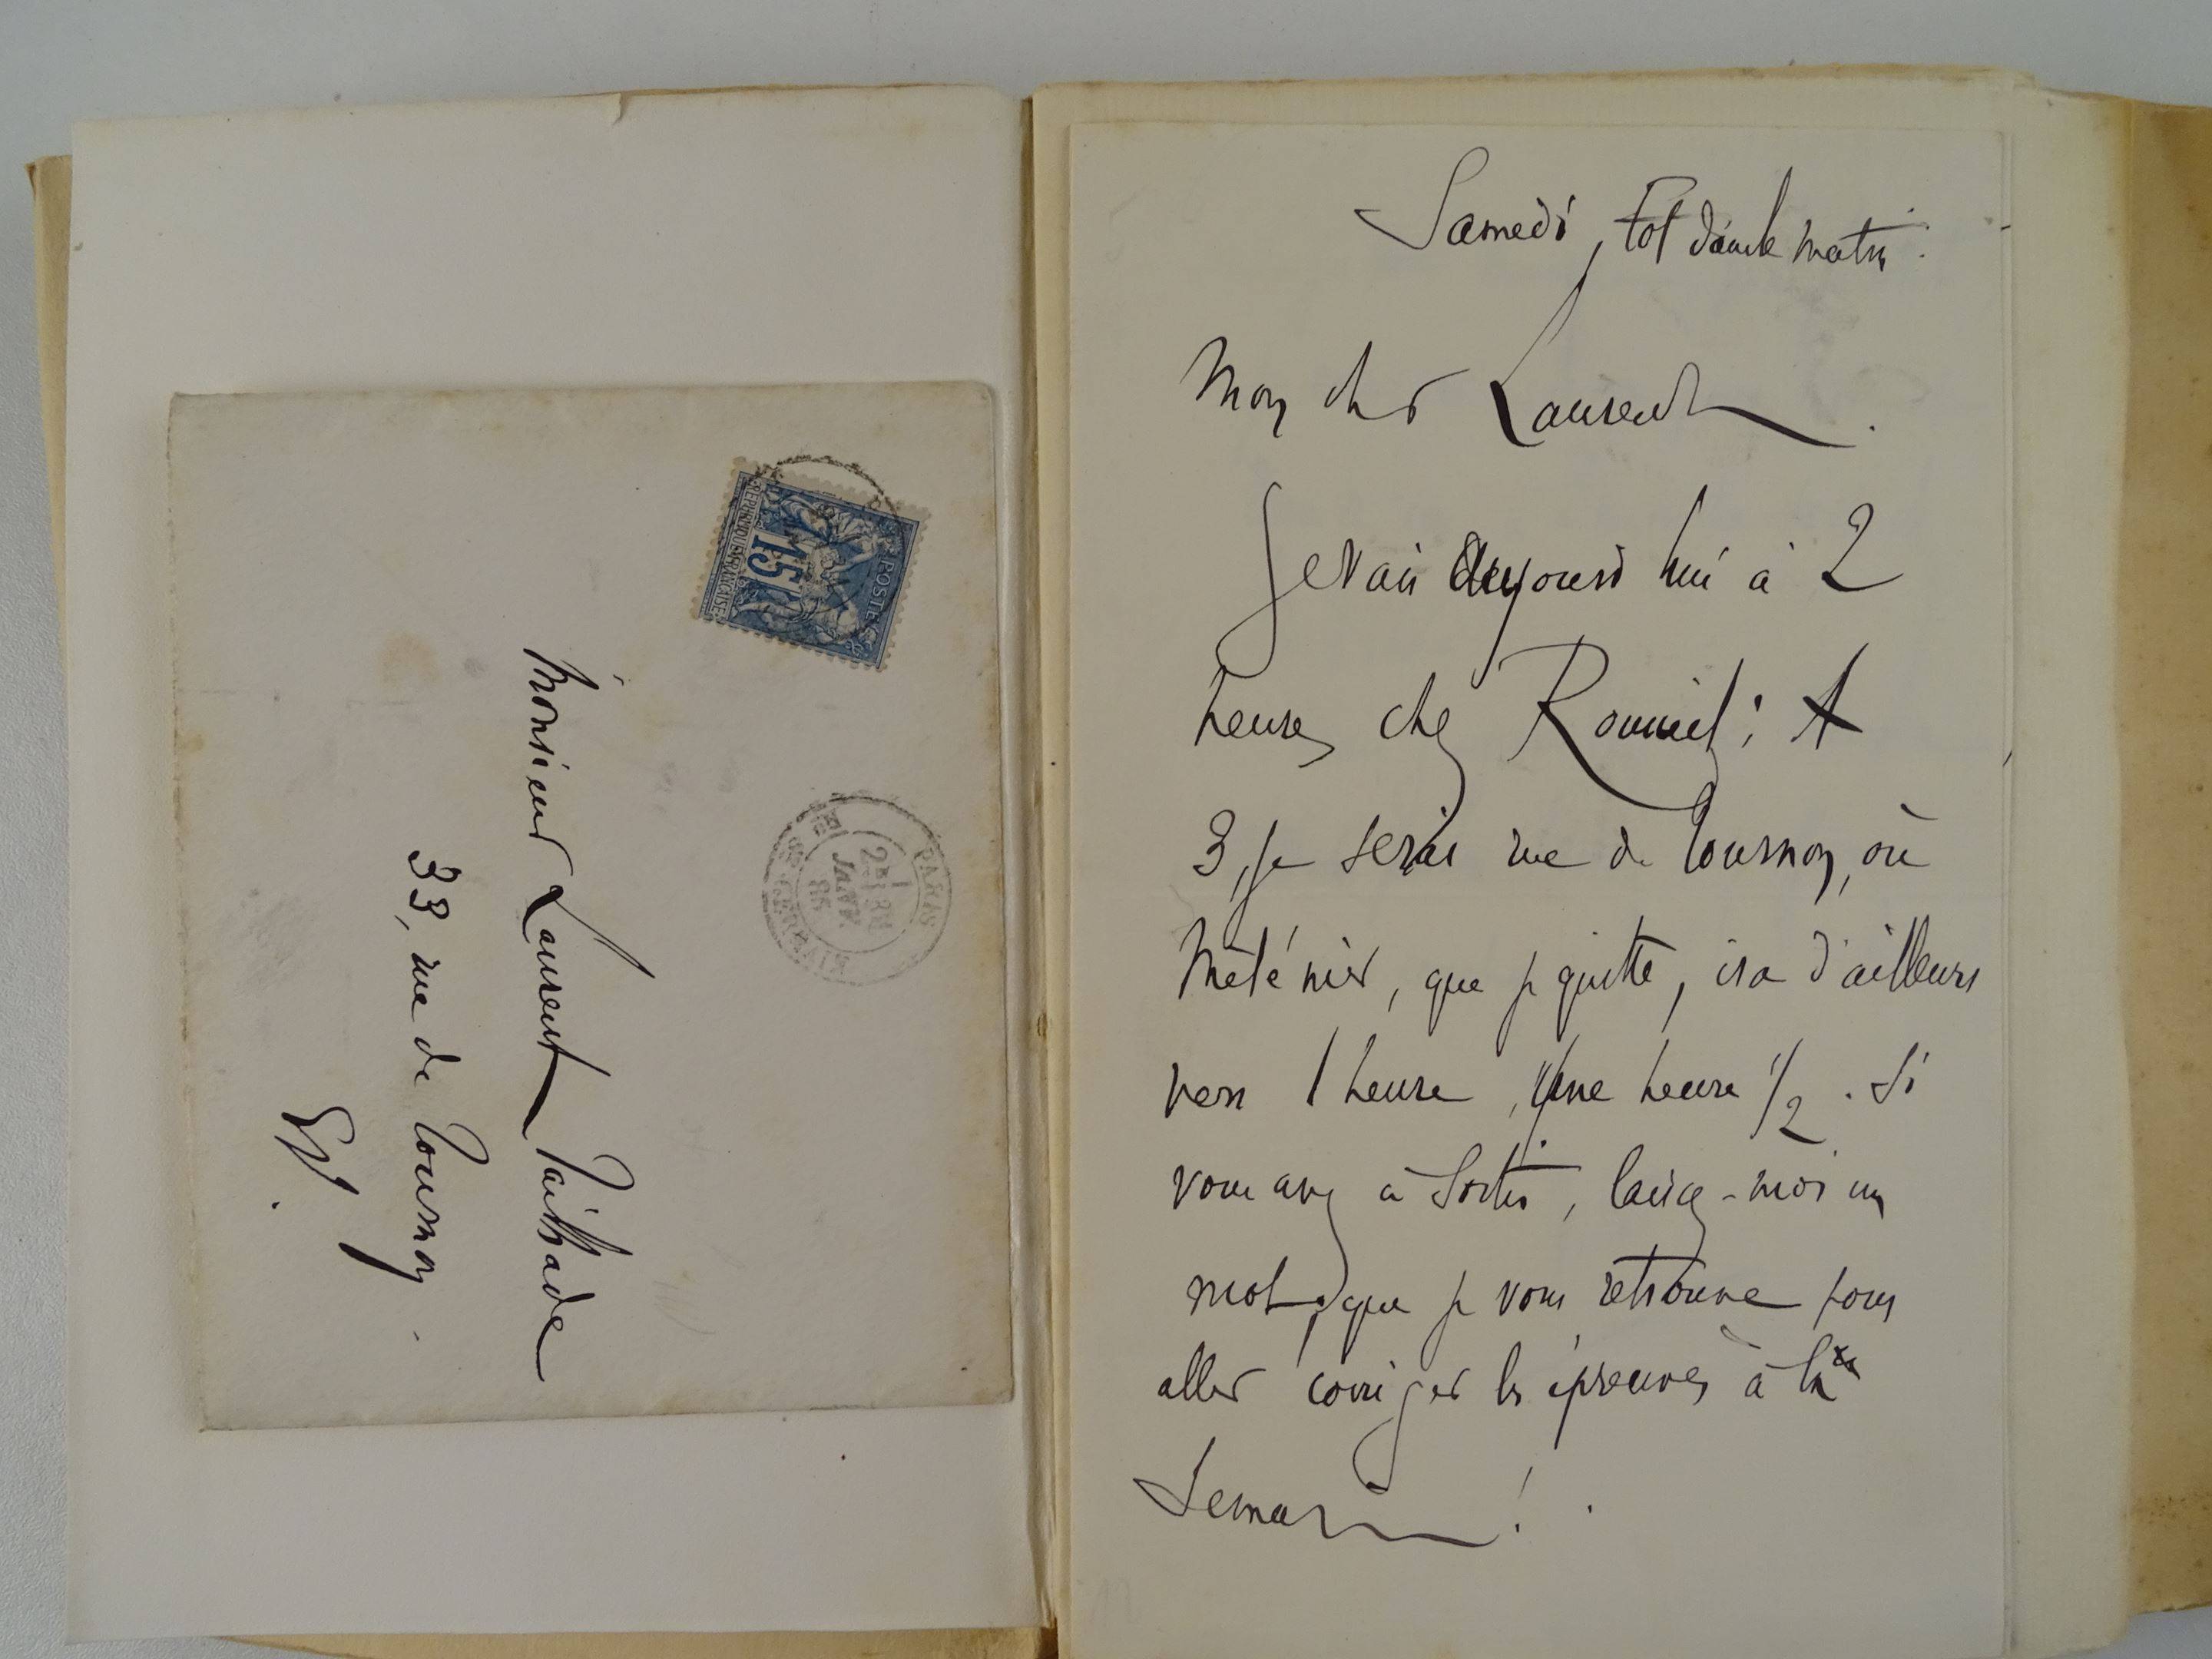 Monsieur Laurent Tailhade
33, rue de Tournon
E/V.
REPUBLIQUE FRANCAISE
POSTES
15
PARIS
JANV
85
Samedi, tôt dans le matin.
Mon cher Laurent.
Je vais aujourd'hui à 2
heures chez Rouveil; A
3, je serai rue de Tournon, où
Méténier, que je quitte, ira d'ailleurs
vers 1 heure, Une heure 1/2. Si
vous avez à sortir, laissez-moi un
mot, que je vous retrouve pour
aller corriger les épreuves à la
Lemar !